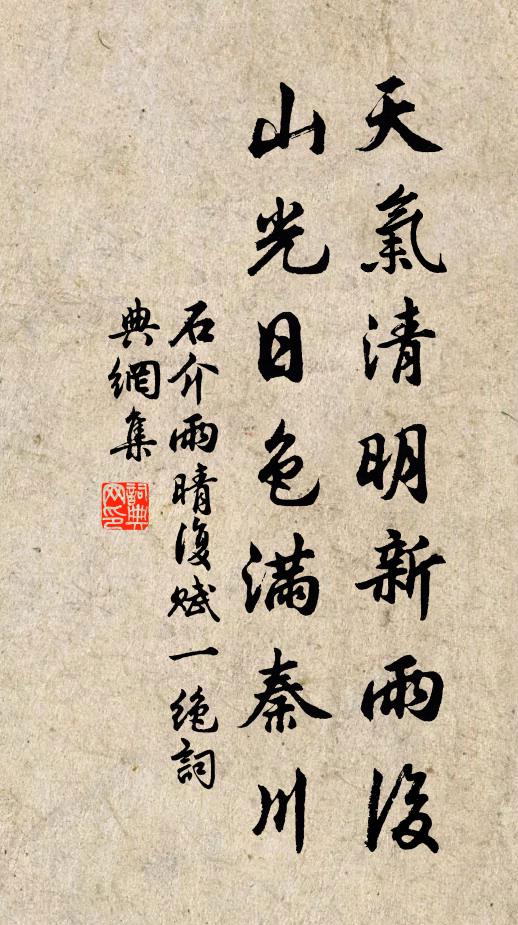 天氣清明新雨後
山光日色滿秦川
石介雨晴復賦一絶詞
典網集
詞典
网印